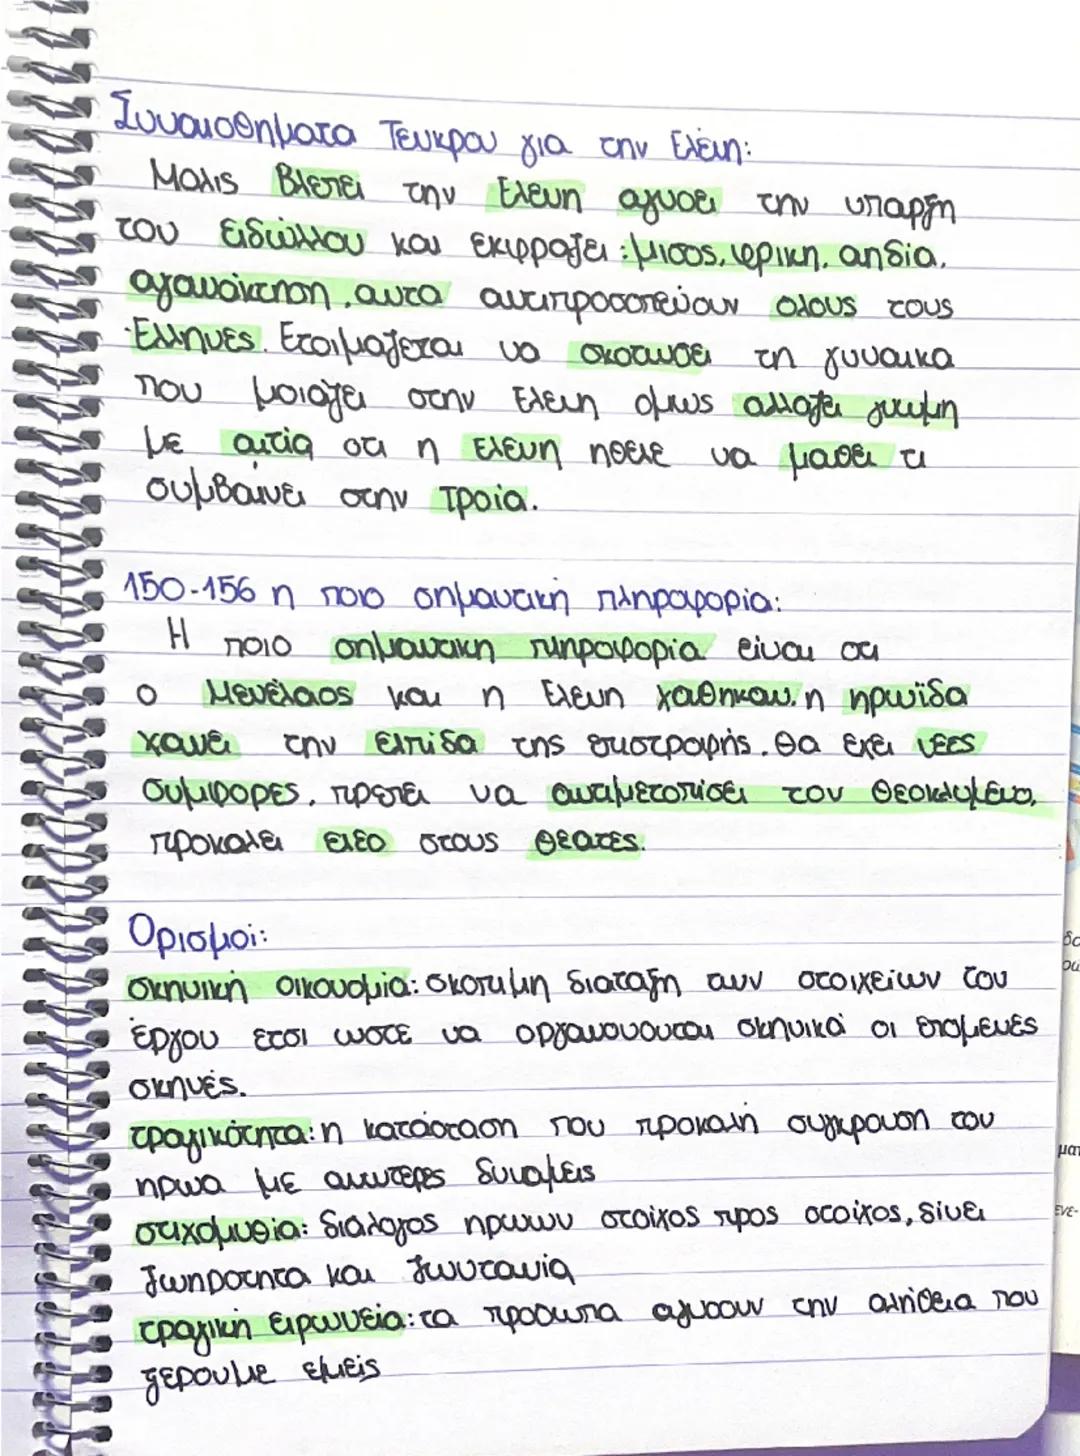 Συναισθηματα Τευκρου για την Ελένη:
Μολις βλεπει την Ελενη αγνοει την υπαρξη
του ειδώλλου και εκφραζει: μισος, φρικη, αηδία,
αγανάκτηση, αυτα αντιπροσοπεύουν ολους τους
Έλληνες. Ετοιμαζεται να σκοτωσει τη γυναικα
που μοιαζει στην Ελενη ομως αλλαζει γνωμη
με αιτία οτι η Ελενη ηθελε να μαθει τι
συμβαίνει στην Τροία.
150-156 η ποιο σημαντική πληροφορία:
Η ποιο σημαντικη πληροφορία είναι οτι
ο Μενέλαος και η Ελενη χαθηκαν. η ηρωίδα
χανει την ελπίδα της επιστροφής. Θα εχει νεες
συμφορες, πρεπει να αντιμετοπίσει τον Θεοκλυμενο,
προκαλει ελεο στους θεατες.
Ορισμοί:
σκηνική οικονομία: σκοπιμη διαταξη των στοιχείων του
έργου ετσι ωστε να οργανονονται σκηνικά οι επομενες
σκηνές.
τραγικότητα: η κατάσταση που προκαλή συγκρουση του
ηρωα με ανωτερες δυναμεις
στιχομυθία: διαλογος ηρωων στοίχος προς στοίχος, δίνει
ζωηροτητα και ζωντανια
τραγική ειρωνεία: τα προσωπα αγνοουν την αλήθεια που
ξερουμε εμείς